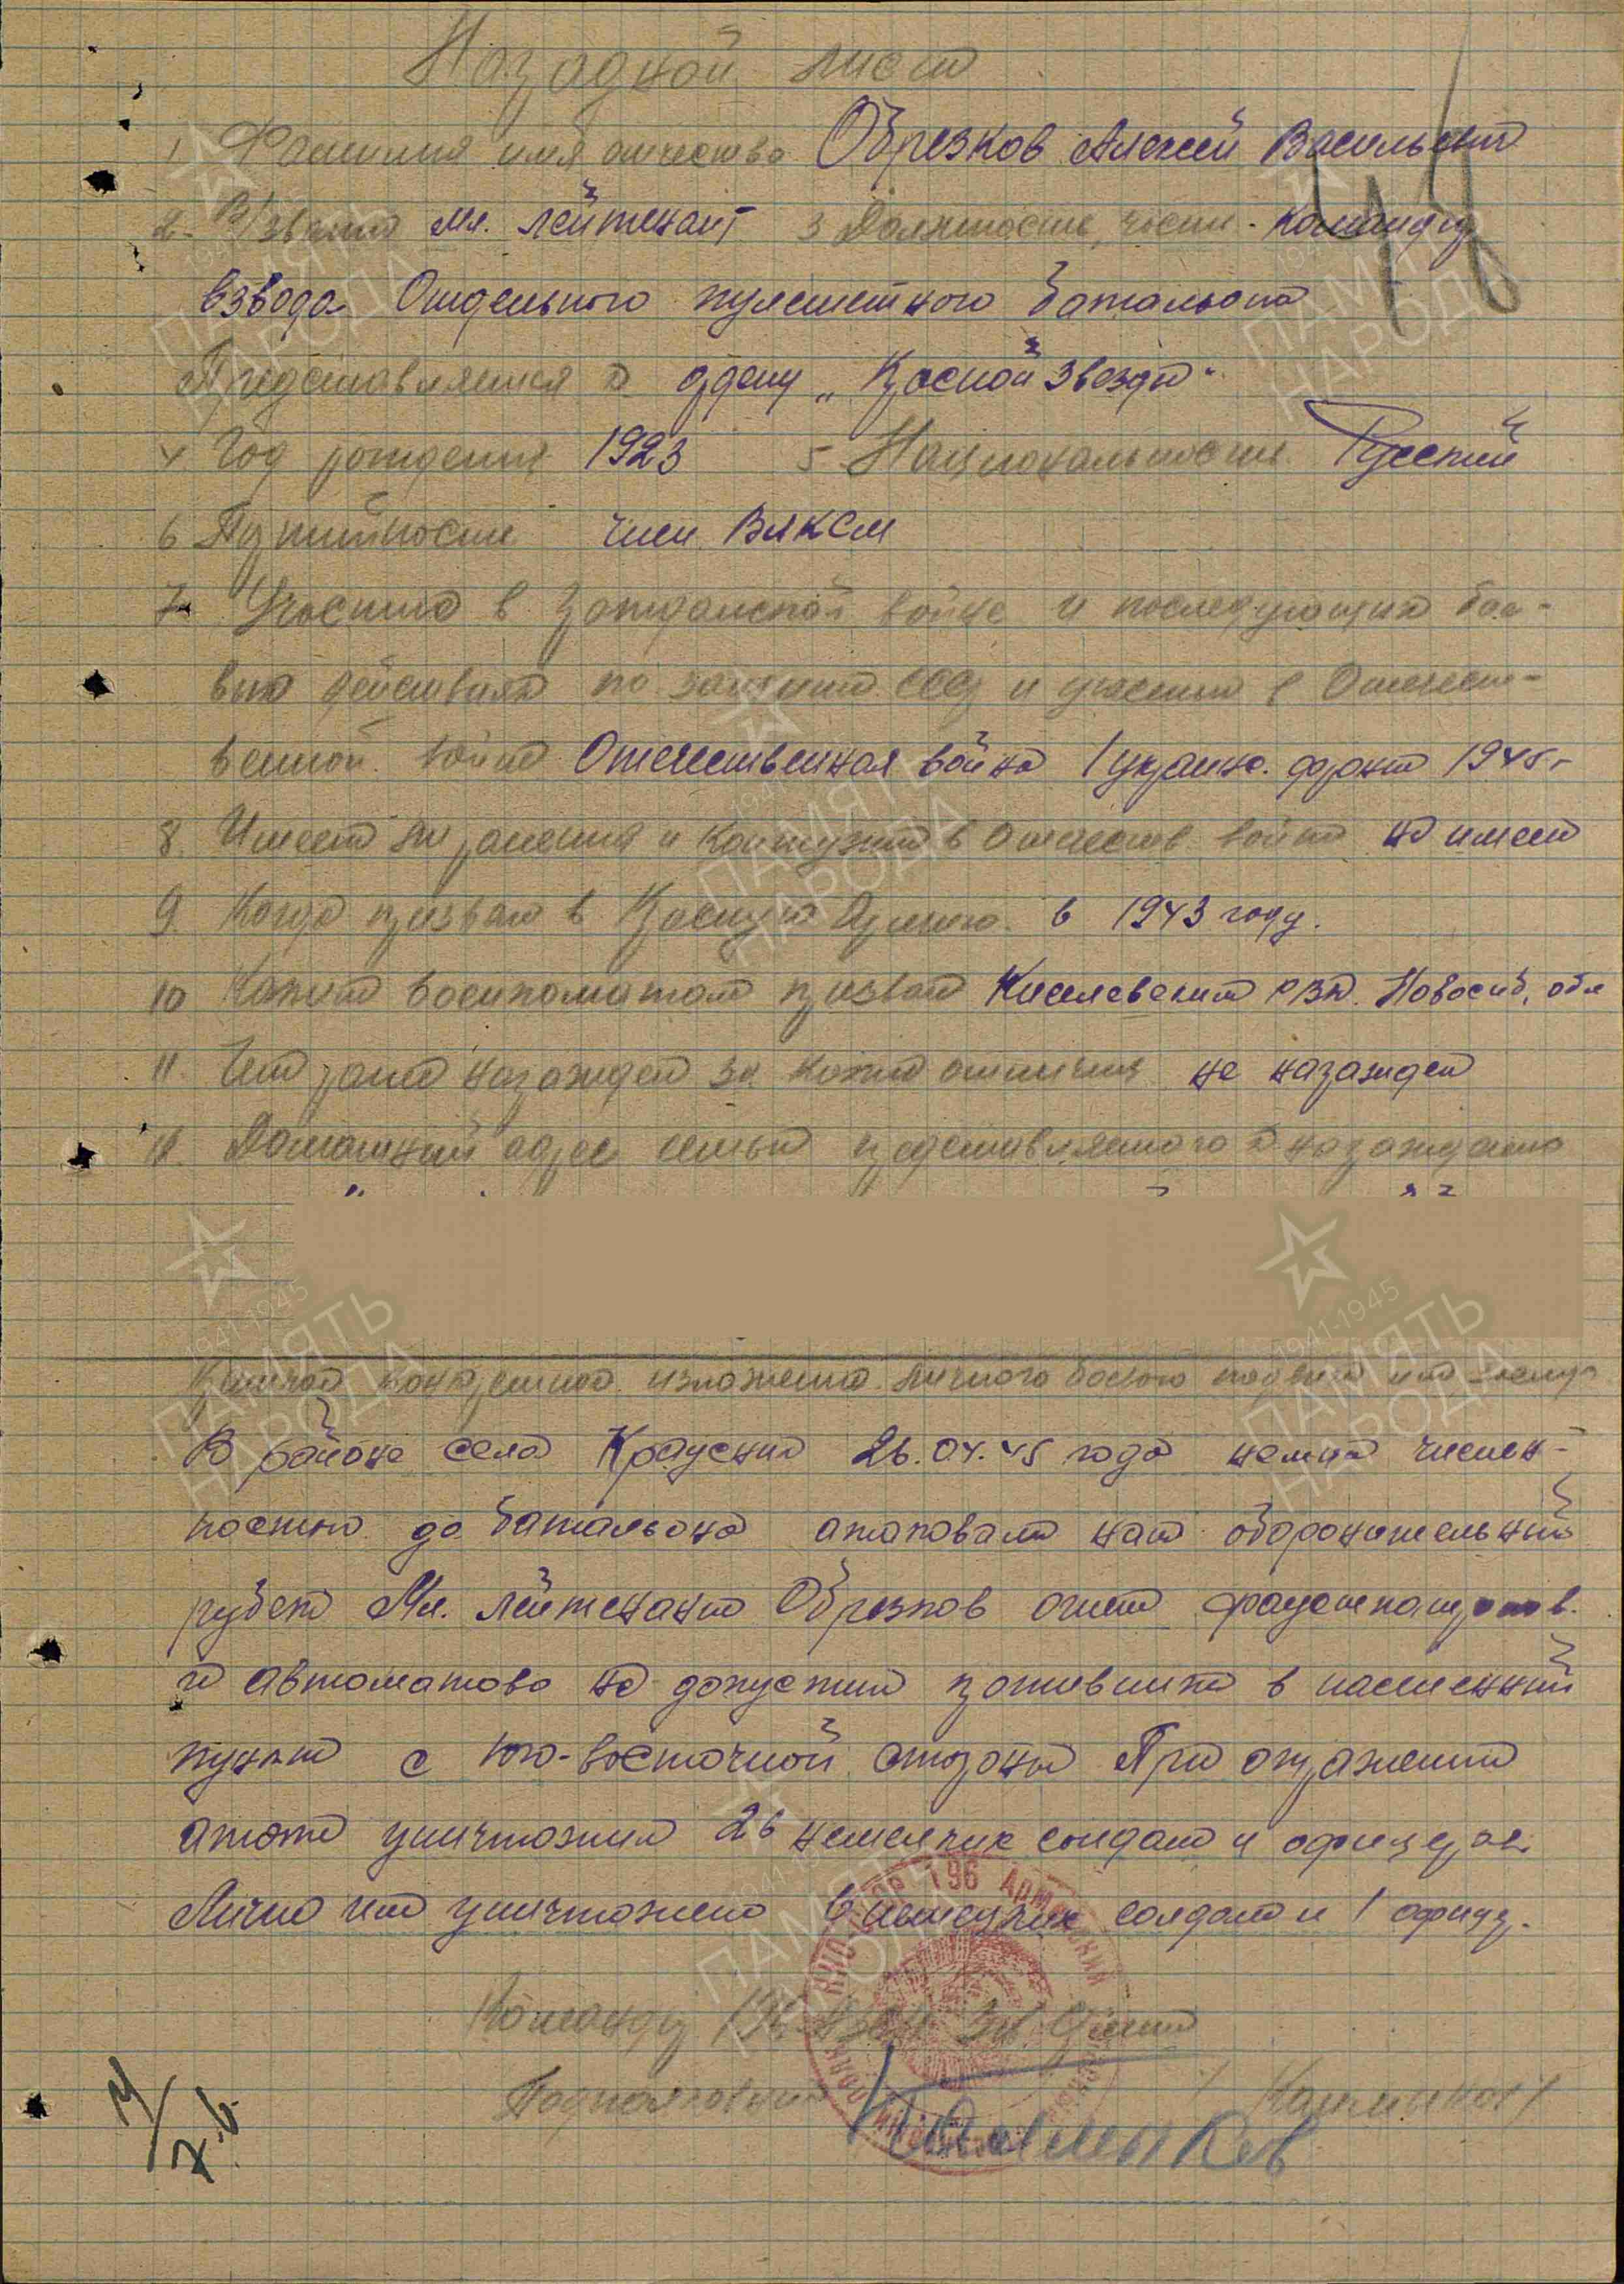 Наградной лист
1 Фамилия имя отчество Обрезков Алексей Васильевич
2. В/звание Мл. лейтенант 3 Должность, часть - Командир
взвода Отдельного пулеметного батальона
Представляется к ордену „Красной Звезды“
4. Год рождения 1923 5 Национальность Русский
6 Партийность член ВЛКСМ
7. Участие в гражданской войне и последующих бое-
вых действиях по защите СССР и участие в Отечест-
венной войне Отечественная война 1 украинс. фронт 1945 г
8. Имеет ли ранения и контузии в отечеств. войне не имеет
9. Когда призван в Красную Армию. в 1943 году.
10 Каким военкоматом призван Киселевским РВК. Новосиб. обл
11. Чем ранее награжден за какие отличия не награжден
12. Домашний адрес семьи представляемого к награждению
Краткое конкретное изложение личного боевого подвига или заслуг
В районе села 26.04.45 года немцы числен-
ностью до батальона атаковали наш оборонительный
рубеж Мл. лейтенант Обрезков огнем фаустпатронов
и автоматов не допустил противника в населенный
пункт с юго-восточной стороны При отражении
атаки уничтожил 26 немецких солдат и офицеров.
Лично им уничтожено 6 немецких солдат и 1 офицер.
196 АРМЕЙСКИЙ
Командир
Подполковник / Калмыков /
Калмыков
ПАМЯТЬ НАРОДА
1941-1945